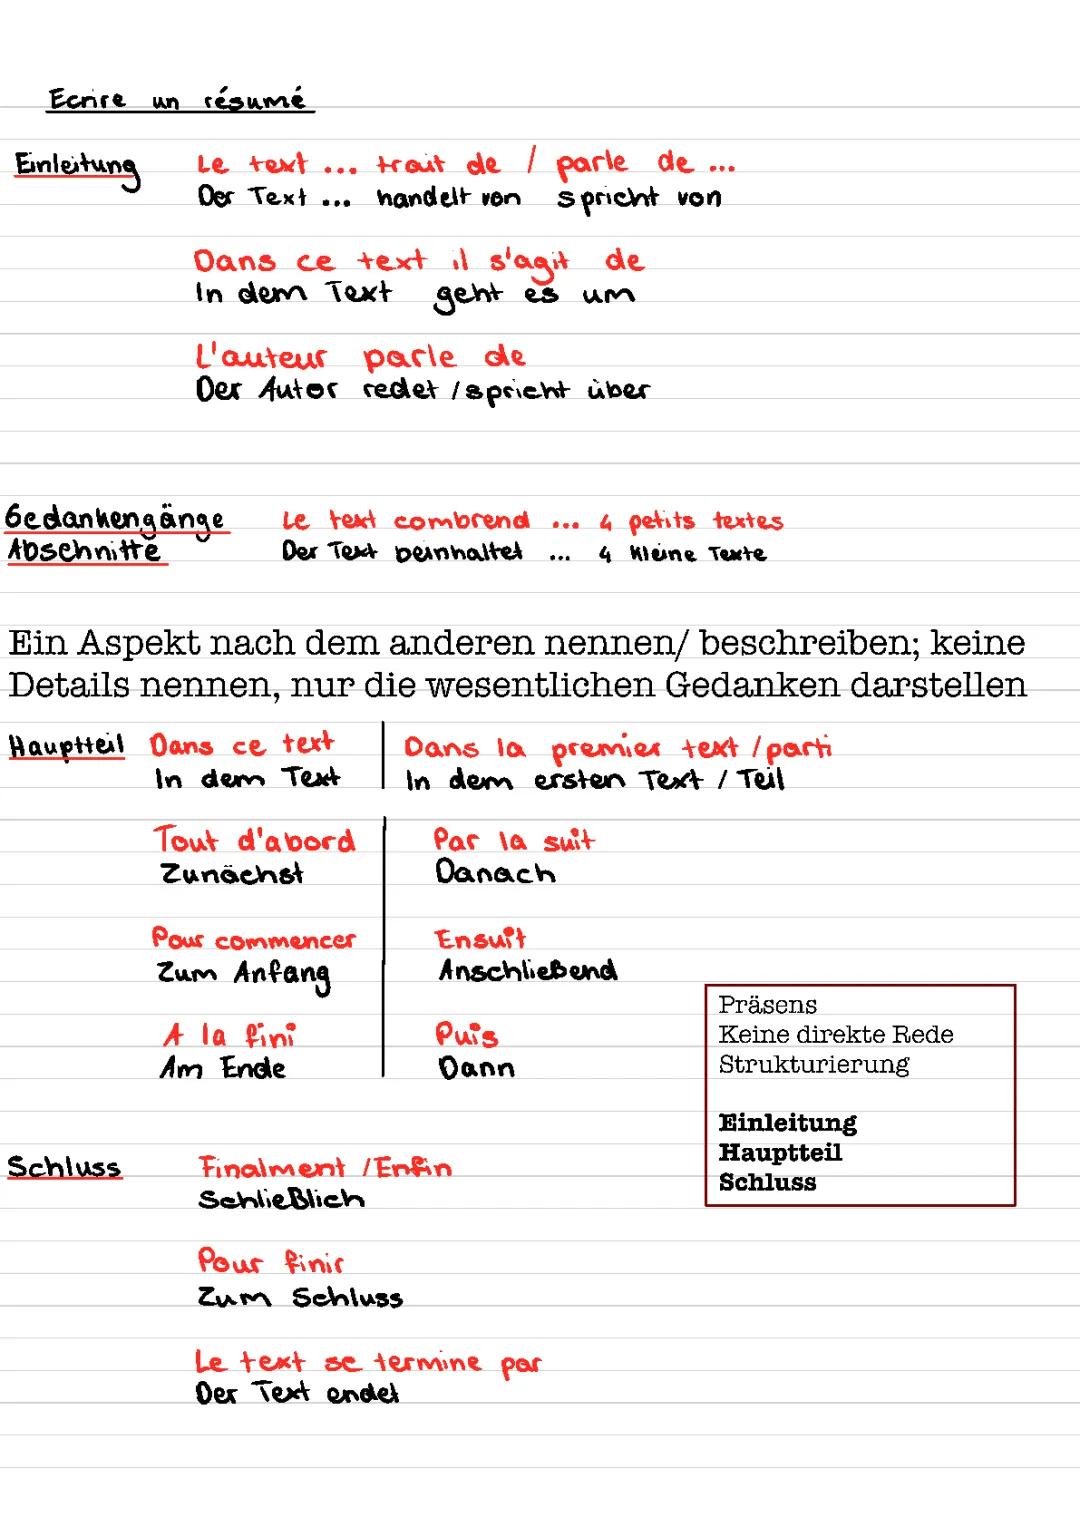 Ecrire un résumé
Einleitung Le text ... trait de / parle de ...
Der Text ... handelt von spricht von
Dans ce text il s'agit de
In dem Text geht es um
L'auteur parle de
Der Autor redet / spricht über
Gedankengänge Le text combrend ... 4 petits textes
Abschnitte Der Text beinhaltet ... 4 kleine Texte
Ein Aspekt nach dem anderen nennen/ beschreiben; keine
Details nennen, nur die wesentlichen Gedanken darstellen
Hauptteil Dans ce text Dans la premier text / parti
In dem Text In dem ersten Text / Teil
Tout d'abord Par la suit
Zunächst Danach
Pour commencer Ensuit
Zum Anfang Anschließend
A la fini Puis
Am Ende Dann
Präsens
Keine direkte Rede
Strukturierung
Einleitung
Hauptteil
Schluss
Schluss Finalment / Enfin
Schließlich
Pour finir
Zum Schluss
Le text se termine par
Der Text endet